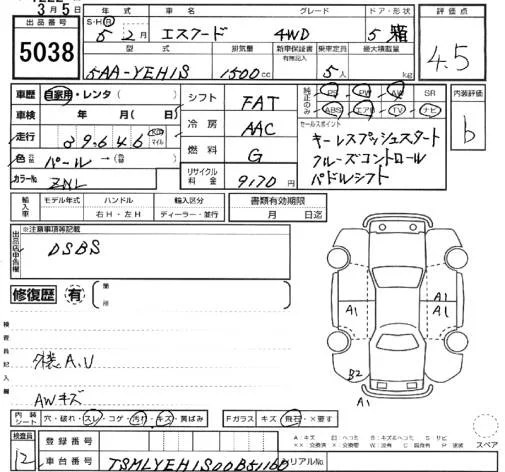 3月5日
出品番号
5038
年式 車名 グレード ドア・形状
S・H・R 5年2月 エスクード 4WD 5 箱
型式 排気量 新車保証書 有無記入 乗車定員 最大積載量
5AA-YEH1S 1500cc 5人 kg
評価点
4.5
車歴 自家用・レンタ( )
シフト FAT
純正のみ PS PW AW SR
ABS エアB TV ナビ
内装評価
b
車検 年 月( 日)
冷房 AAC
セールスポイント
キーレスプッシュスタート
クルーズコントロール
パドルシフト
走行 39,646 km マイル
燃料 G
色 パール ( )
リサイクル料金 9,170円
カラーNo. ZNL
輸入車 モデル年式 ハンドル 輸入区分 書類有効期限
右H・左H ディーラー・並行 月 日迄
出品店申告欄
※注意事項等記載
DSBS
修復歴 有 ( 箇所
検査員記入欄
外装A,U
AWキズ
A1
A1
A1
B2
A1
内装シート 穴・破れ・スレ・コゲ・汚れ・キズ・黄ばみ Fガラス キズ・飛石・×要す
スペア
検査員
12
登録番号
A キズ U ヘコミ B キズ&ヘコミ S サビ
××交換済 ×交換要 W 波 C 腐食 P 塗装
車台番号 TSMLYEH1S00B511 シリアルNo.